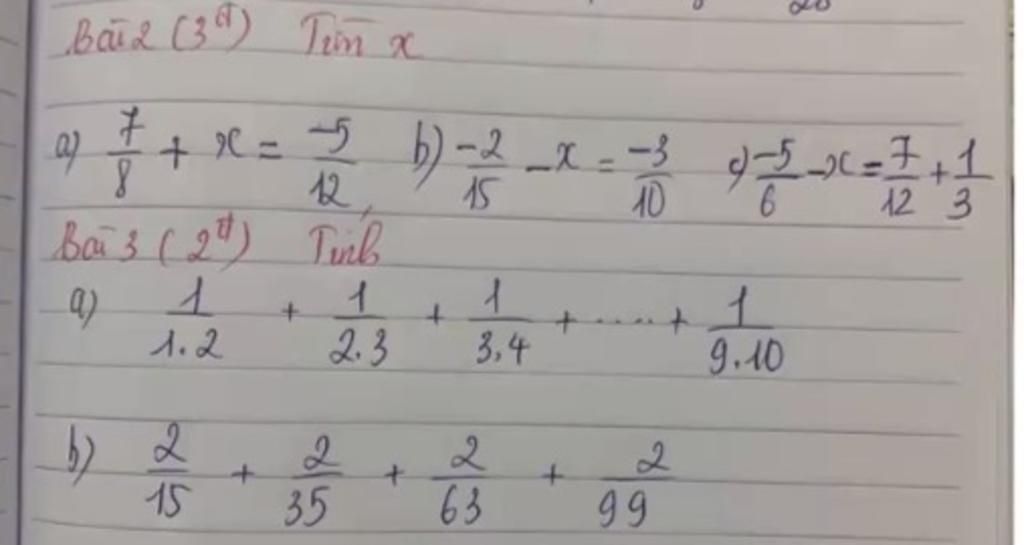 Bài 2 (3đ) Tìm x
a) 7/8 + x = -5/12 b) -2/15 - x = -3/10 c) -5/6 - x = 7/12 + 1/3
Bài 3 (2đ) Tính
a) 1/1.2 + 1/2.3 + 1/3.4 + ..... + 1/9.10
b) 2/15 + 2/35 + 2/63 + 2/99